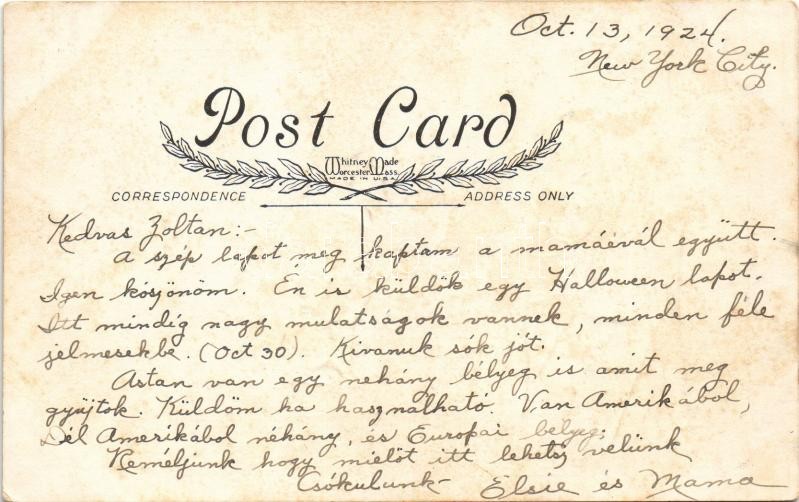 Oct. 13, 1924.
New York City.
Post Card
Whitney Made
Worcester Mass.
MADE IN U.S.A.
CORRESPONDENCE
ADDRESS ONLY
Kedvas Zoltan:-
A szép lapot meg kaptam a mamáévál együtt.
Igen kösjönöm. Én is küldök egy Halloween lapot.
Itt mindíg nagy mulatságok vannek, minden féle
jelmesekbe. (Oct 30). Kivanuk sók jót.
Astan van egy nehány bélyeg is amit meg
gyüjtok. Küldöm ha hasznalható. Van Amerikából,
Dél Amerikából néhány, és Europai bélyeg.
Keméljunk hogy mielöt itt lehetsz velünk
Csókulunk- Elsie és Mama